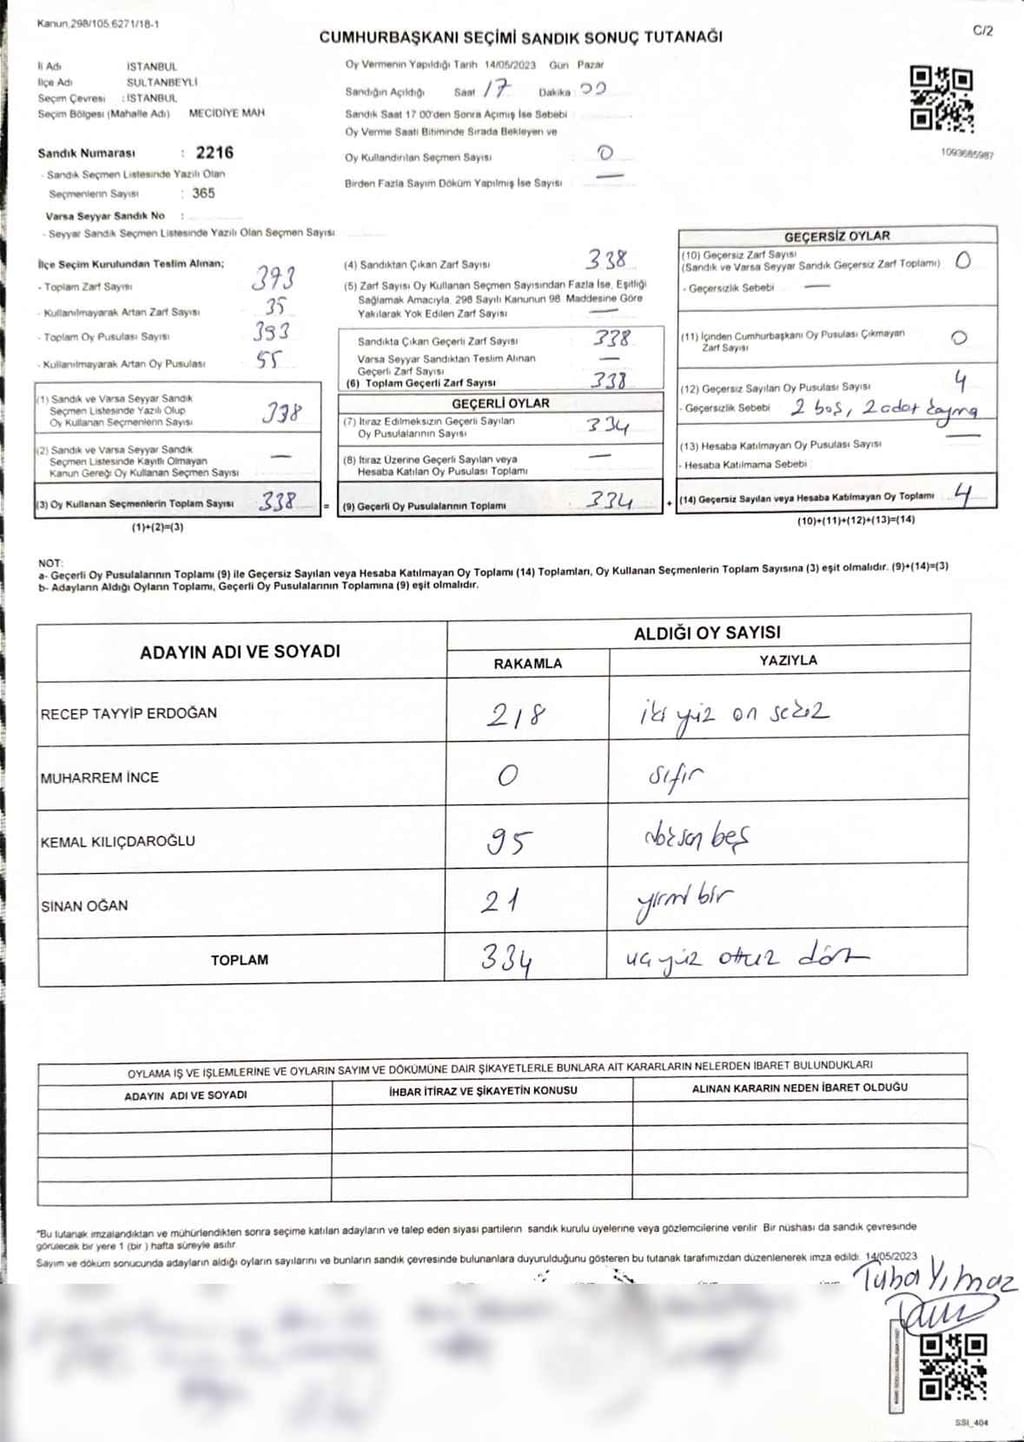 Kanun 298/105 6271/18-1
C/2
CUMHURBAŞKANI SEÇİMİ SANDIK SONUÇ TUTANAĞI
İl Adı İSTANBUL
İlçe Adı SULTANBEYLİ
Seçim Çevresi : İSTANBUL
Seçim Bölgesi (Mahalle Adı) MECİDİYE MAH
Sandık Numarası : 2216
- Sandık Seçmen Listesinde Yazılı Olan
Seçmenlerin Sayısı : 365
Varsa Seyyar Sandık No :
- Seyyar Sandık Seçmen Listesinde Yazılı Olan Seçmen Sayısı
Oy Vermenin Yapıldığı Tarih 14/05/2023 Gün Pazar
Sandığın Açıldığı Saat 17 Dakika 00
Sandık Saat 17 00'den Sonra Açımış İse Sebebi
Oy Verme Saati Bitiminde Sırada Bekleyen ve
Oy Kullandırılan Seçmen Sayısı 0
Birden Fazla Sayım Döküm Yapılmış İse Sayısı —
1093685987
İlçe Seçim Kurulundan Teslim Alınan;
- Toplam Zarf Sayısı 393
- Kullanılmayarak Artan Zarf Sayısı 35
- Toplam Oy Pusulası Sayısı 393
- Kullanılmayarak Artan Oy Pusulası 55
(1) Sandık ve Varsa Seyyar Sandık
Seçmen Listesinde Yazılı Olup
Oy Kullanan Seçmenlerin Sayısı 338
(2) Sandık ve Varsa Seyyar Sandık
Seçmen Listesinde Kayıtlı Olmayan
Kanun Gereği Oy Kullanan Seçmen Sayısı —
(3) Oy Kullanan Seçmenlerin Toplam Sayısı 338 =
(1)+(2)=(3)
(4) Sandıktan Çıkan Zarf Sayısı 338
(5) Zarf Sayısı Oy Kullanan Seçmen Sayısından Fazla İse, Eşitliği
Sağlamak Amacıyla, 298 Sayılı Kanunun 98 Maddesine Göre
Yakılarak Yok Edilen Zarf Sayısı —
Sandıkta Çıkan Geçerli Zarf Sayısı 338
Varsa Seyyar Sandıktan Teslim Alınan
Geçerli Zarf Sayısı —
(6) Toplam Geçerli Zarf Sayısı 338
GEÇERLİ OYLAR
(7) İtiraz Edilmeksizin Geçerli Sayılan
Oy Pusulalarının Sayısı 334
(8) İtiraz Üzerine Geçerli Sayılan veya
Hesaba Katılan Oy Pusulası Toplamı —
(9) Geçerli Oy Pusulalarının Toplamı 334 +
GEÇERSİZ OYLAR
(10) Geçersiz Zarf Sayısı
(Sandık ve Varsa Seyyar Sandık Geçersiz Zarf Toplamı) 0
- Geçersizlik Sebebi —
(11) İçinden Cumhurbaşkanı Oy Pusulası Çıkmayan
Zarf Sayısı 0
(12) Geçersiz Sayılan Oy Pusulası Sayısı 4
- Geçersizlik Sebebi 2 boş, 2 adet
(13) Hesaba Katılmayan Oy Pusulası Sayısı —
- Hesaba Katılmama Sebebi
(14) Geçersiz Sayılan veya Hesaba Katılmayan Oy Toplamı 4
(10)+(11)+(12)+(13)=(14)
NOT:
a- Geçerli Oy Pusulalarının Toplamı (9) ile Geçersiz Sayılan veya Hesaba Katılmayan Oy Toplamı (14) Toplamları, Oy Kullanan Seçmenlerin Toplam Sayısına (3) eşit olmalıdır. (9)+(14)=(3)
b- Adayların Aldığı Oyların Toplamı, Geçerli Oy Pusulalarının Toplamına (9) eşit olmalıdır.
ADAYIN ADI VE SOYADI
ALDIĞI OY SAYISI
RAKAMLA YAZIYLA
RECEP TAYYİP ERDOĞAN 218 iki yüz on sekiz
MUHARREM İNCE 0 sıfır
KEMAL KILIÇDAROĞLU 95 doksan beş
SİNAN OĞAN 21 yirmi bir
TOPLAM 334 üç yüz otuz dört
OYLAMA İŞ VE İŞLEMLERİNE VE OYLARIN SAYIM VE DÖKÜMÜNE DAİR ŞİKAYETLERLE BUNLARA AİT KARARLARIN NELERDEN İBARET BULUNDUKLARI
ADAYIN ADI VE SOYADI İHBAR İTİRAZ VE ŞİKAYETİN KONUSU ALINAN KARARIN NEDEN İBARET OLDUĞU
*Bu tutanak imzalandıktan ve mühürlendikten sonra seçime katılan adayların ve talep eden siyasi partilerin sandık kurulu üyelerine veya gözlemcilerine verilir Bir nüshası da sandık çevresinde
görülecek bir yere 1 (bir ) hafta süreyle asılır
Sayım ve döküm sonucunda adayların aldığı oyların sayılarını ve bunların sandık çevresinde bulunanlara duyurulduğunu gösteren bu tutanak tarafımızdan düzenlenerek imza edildi. 14/05/2023
Tuba Yılmaz
SSI_404